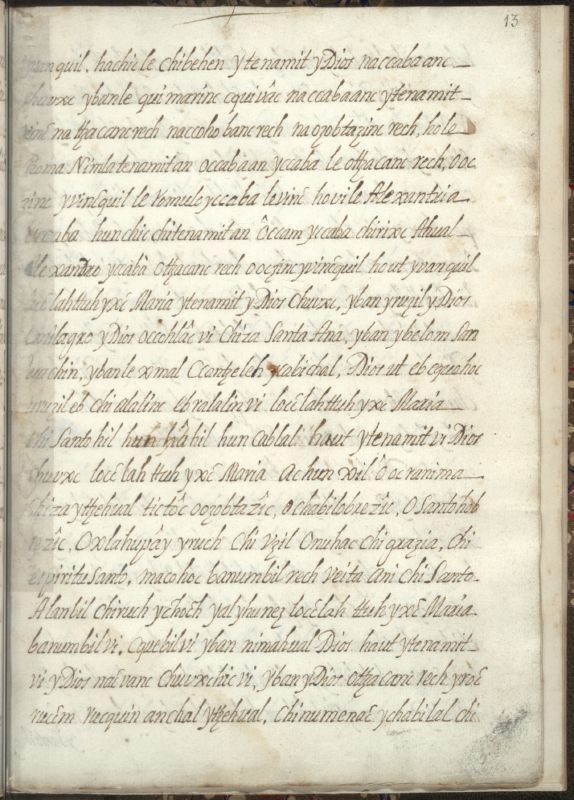 13
quil, hachic le chibehen ytenamit yDios naccabaanc
ybanle qui marinc cquivâc naccabaanc ytenamit
na tħacanc rech naccoho banc rech naozobtazinc rech, ho le
Roma Nimla tenamit an occabaan yccaba le otħacanc rech, ooc
yvinêquil le Romulo yccaba levinê hovi le Alexantria
hunchic chitenamit an Occam yccaba chirixc Ahual
Alexandro yccaba otħacanc rech oocjinc yvinêquil ho ut yvanquil
lahtuh yxê Maria ytenamit yDios Chuvxc, yban yruzil yDios
milagro yDios occohlâc vi Chiza Santa Ana, yban ybolom San
Juachin, ybanle xmal Ccantzelah xabichal, Dios ut eb cquahoc
eb chi alalinc eb ralalin vi locêlah tuh yxê Maria
chi Santohil hun habil hun cablal haut ytenamit vi Dios
chuvxc locêlah tuh yxê Maria Achun xil O oc ranima
chiza ytzehual tictôc oozobtazîc, ochabilobrezîc, OSantohob
rezîc, Oxlahupây yruch Chi Vzil Onuhac chi grazia, Chi
espiritu Santo, macohoc banumbil rech veita ani chi Santo.
Alanbil chiruch ychoch yalyhunez locêlah tuh yxê Maria
banumbil vi, cquebil vi yban nimahual Dios haut ytenamit
vi yDios naêvanc Chuvxclâc vi, yban yDios otħacanc rech yroê
rucêm rucquin anchal ytzehual, Chinumenaê ychabilal chi